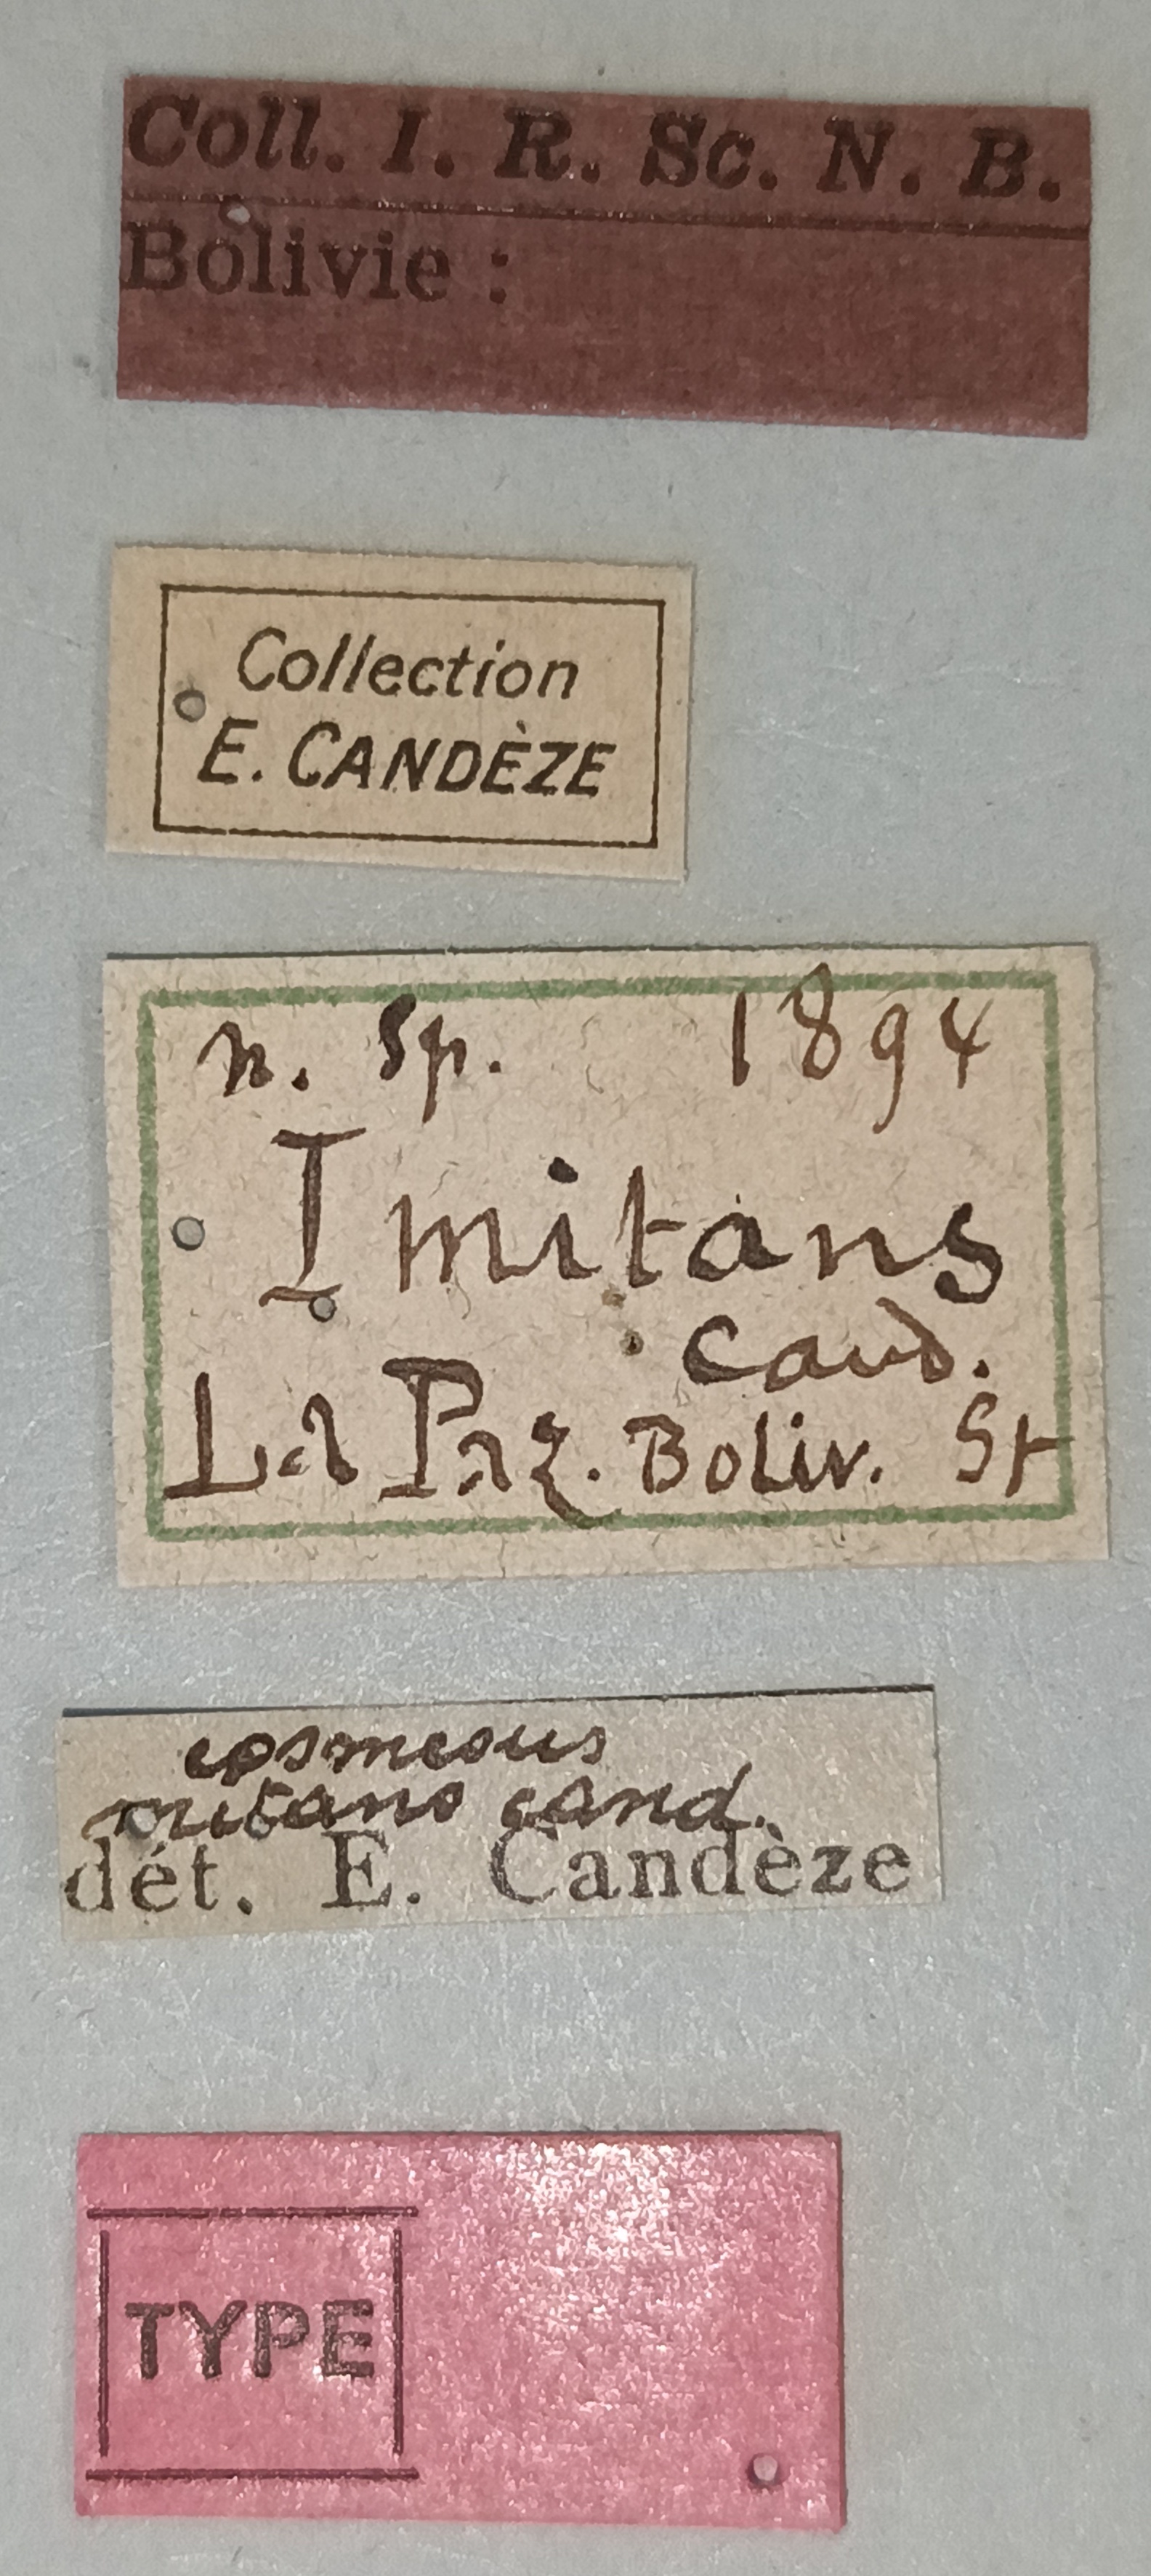 Coll. I. R. Sc. N. B.
Bolivie :
Collection
E. CANDÈZE
n. sp. 1894
Imitans
Cand.
La Paz. Boliv. St
cosmesus
mitans cand.
dét. E. Candèze
TYPE